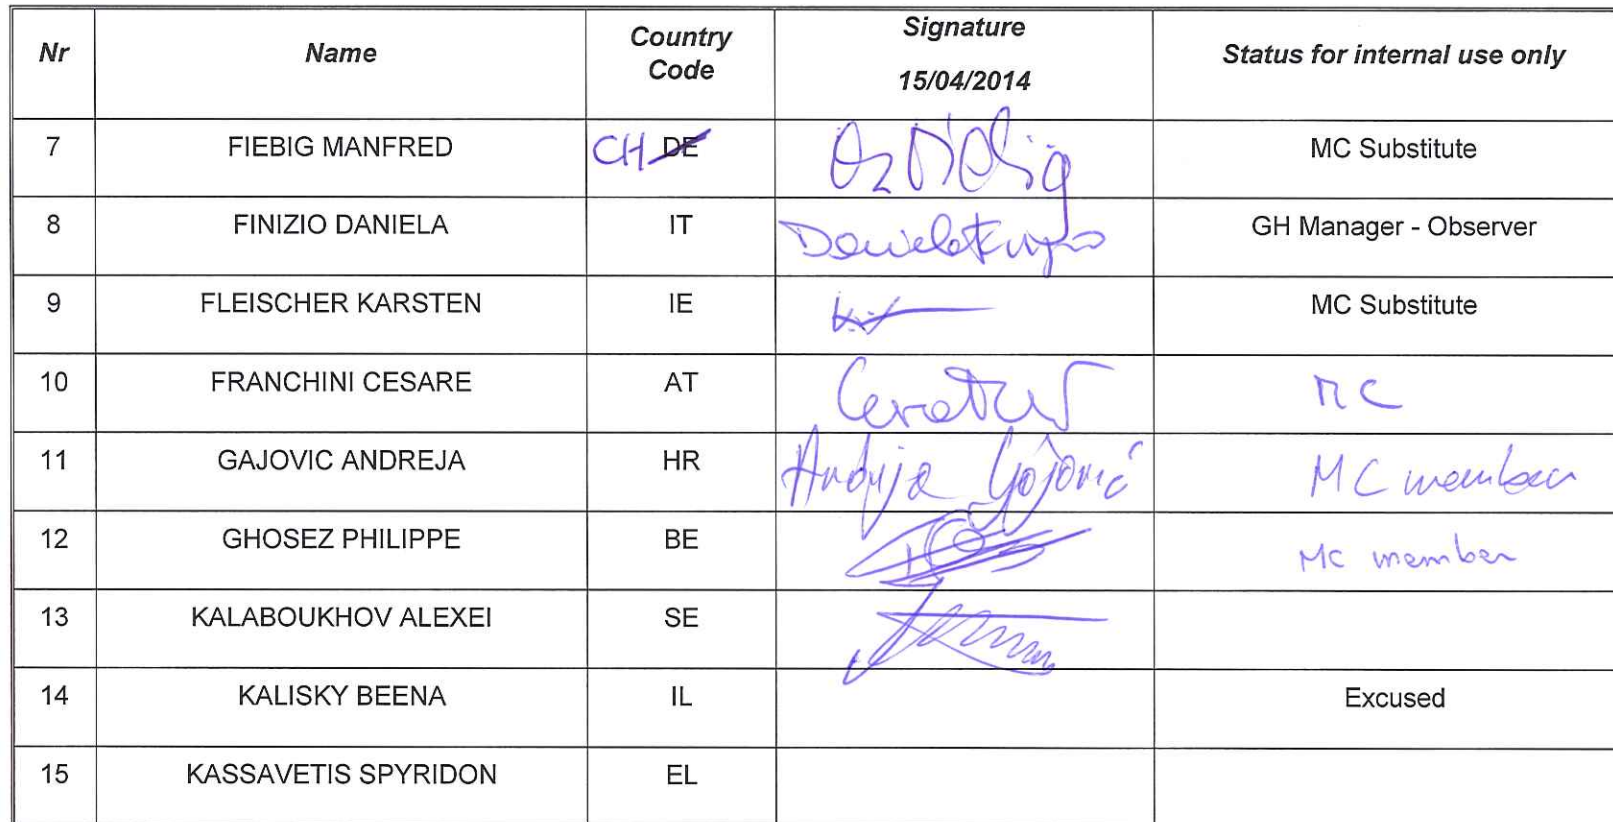 Nr Name Country Code Signature 15/04/2014 Status for internal use only
7 FIEBIG MANFRED CH DE MC Substitute
8 FINIZIO DANIELA IT GH Manager - Observer
9 FLEISCHER KARSTEN IE MC Substitute
10 FRANCHINI CESARE AT MC
11 GAJOVIC ANDREJA HR Andreja Gajović MC member
12 GHOSEZ PHILIPPE BE MC member
13 KALABOUKHOV ALEXEI SE
14 KALISKY BEENA IL Excused
15 KASSAVETIS SPYRIDON EL